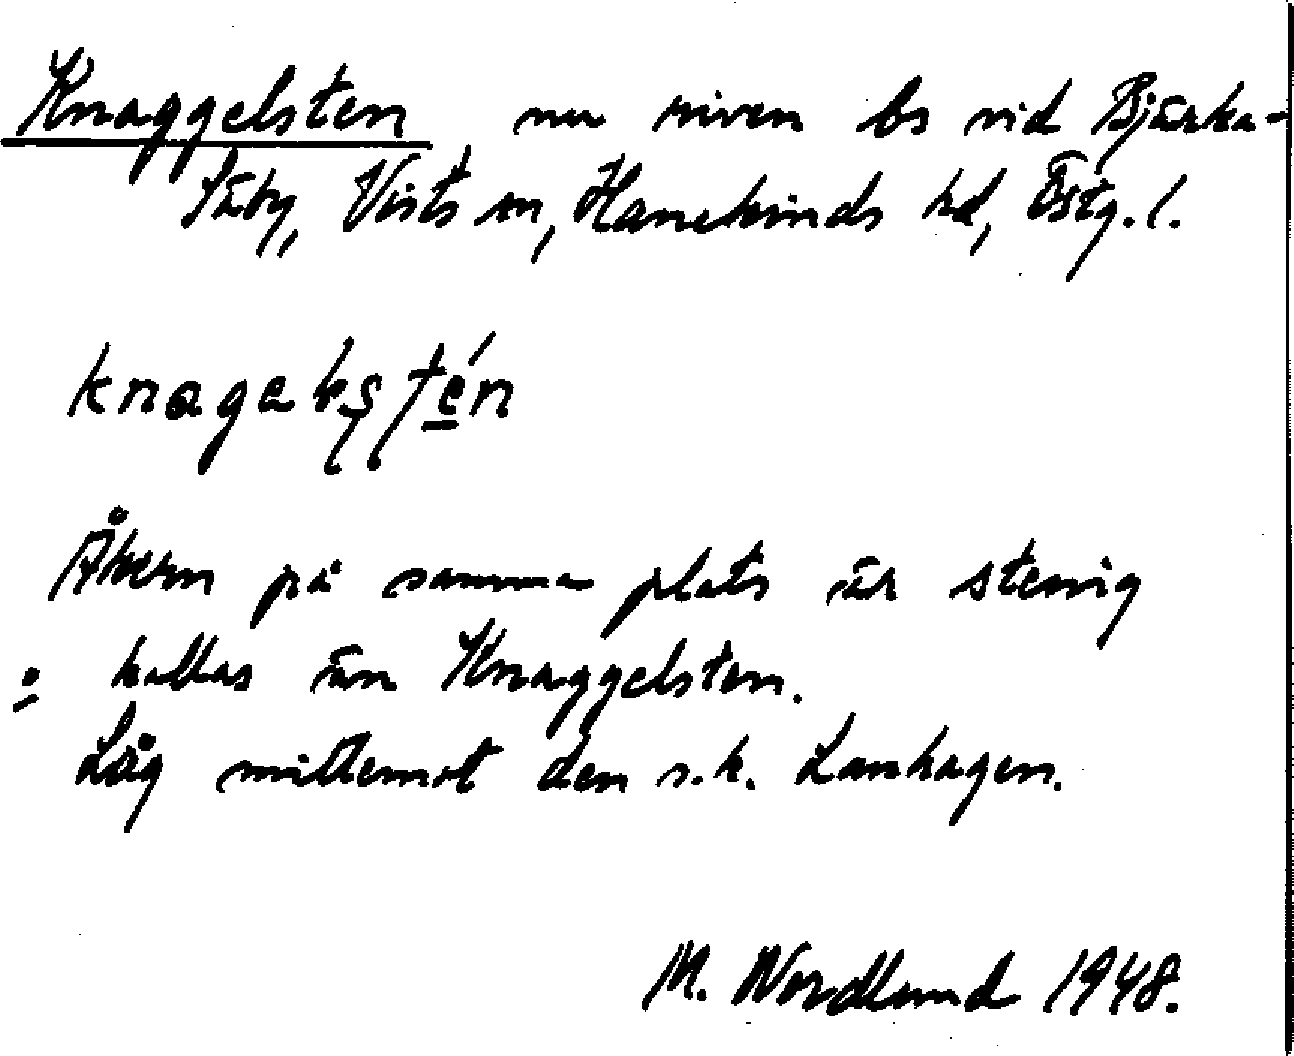 Knaggelsten nu riven bs vid Bjärka-
Säby, Vists sn, Hanekinds hd, Östg. l.
Åkern på samma plats är stenig
o kallas än Knaggelsten.
Låg mittemot den s.k. Lanhagen.
M. Nordlund 1948.